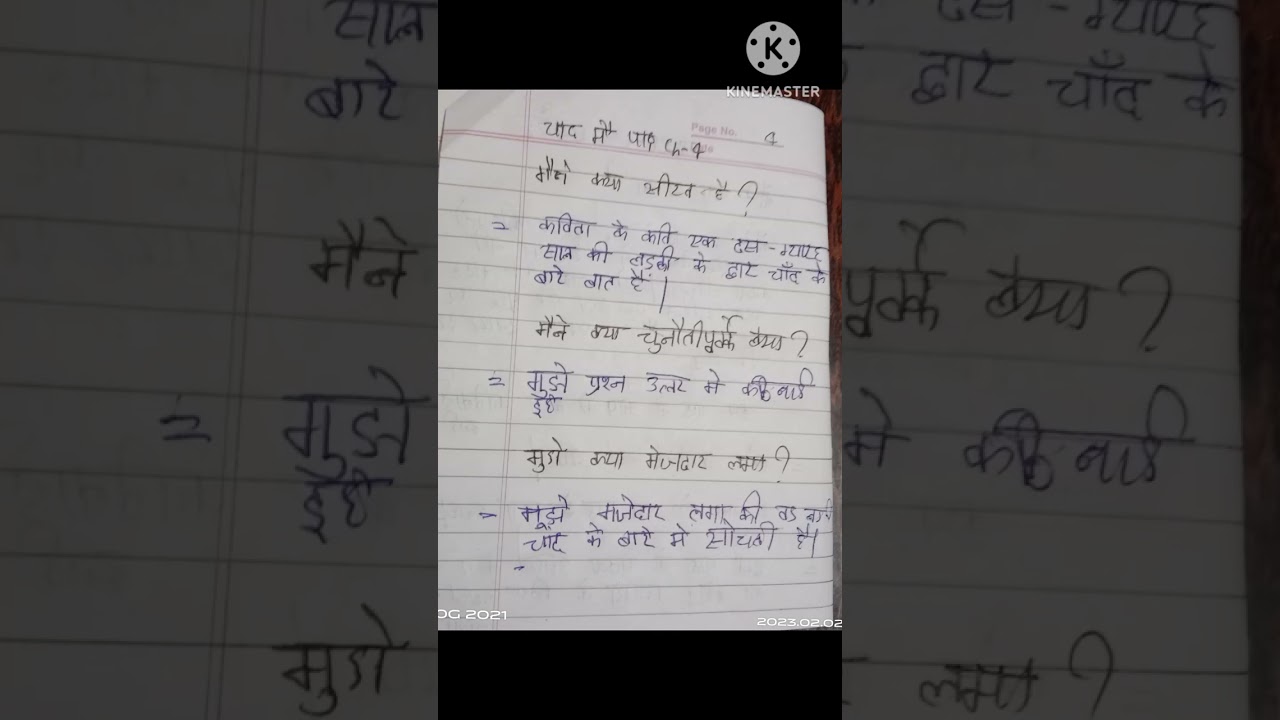 KINEMASTER
Page No. 4
चाद मौ पाद Ch-4
मैने क्या सीख है?
= कविता के कति एक दस-ग्यारह
साल की लड़की के द्वार चाँद के
बारे बात हैं।
मैने क्या चुनौतीपूर्वक क्या?
= मुझे प्रश्न उत्तर मे कठिनाई
हुई
मुझे क्या मेजदार लगा?
= मुझे मजेदार लगा की वड
चाँद के बारे मे सोचती है।
=
OG 2021
2023.02.02